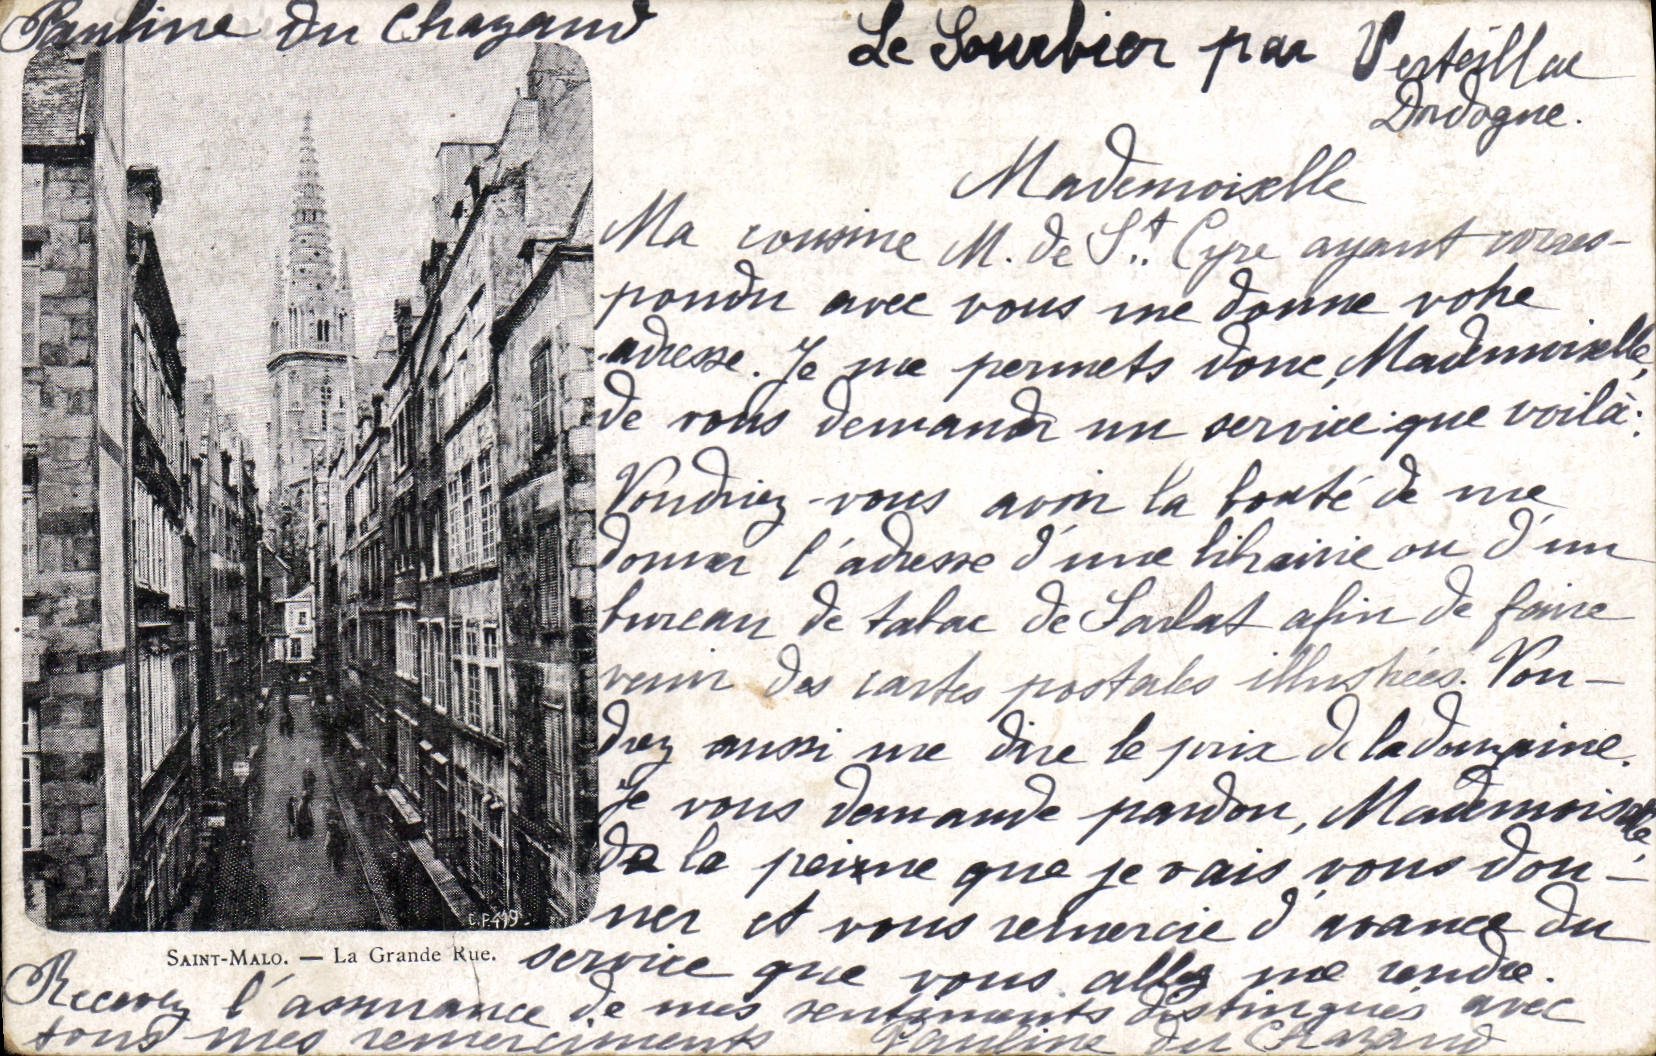 Pauline du Chazaud
Le Sourbier par Verteillac
Dordogne.
Mademoiselle
Ma cousine M. de St. Cyre ayant corres-
pondu avec vous me donne votre
adresse. Je me permets donc, Mademoiselle,
de vous demander un service que voilà:
Voudriez-vous avoir la bonté de me
donner l'adresse d'une librairie ou d'un
bureau de tabac de Sarlat afin de faire
venir des cartes postales illustrées. Vou-
drez aussi me dire le prix de la douzaine.
Je vous demande pardon, Mademoiselle
de la peine que je vais vous don-
ner et vous remercie d'avance du
service que vous allez me rendre.
Recevez l'assurance de mes sentiments distingués avec
tous mes remerciments Pauline du Chazaud
C.P. 419
SAINT-MALO. — La Grande Rue.